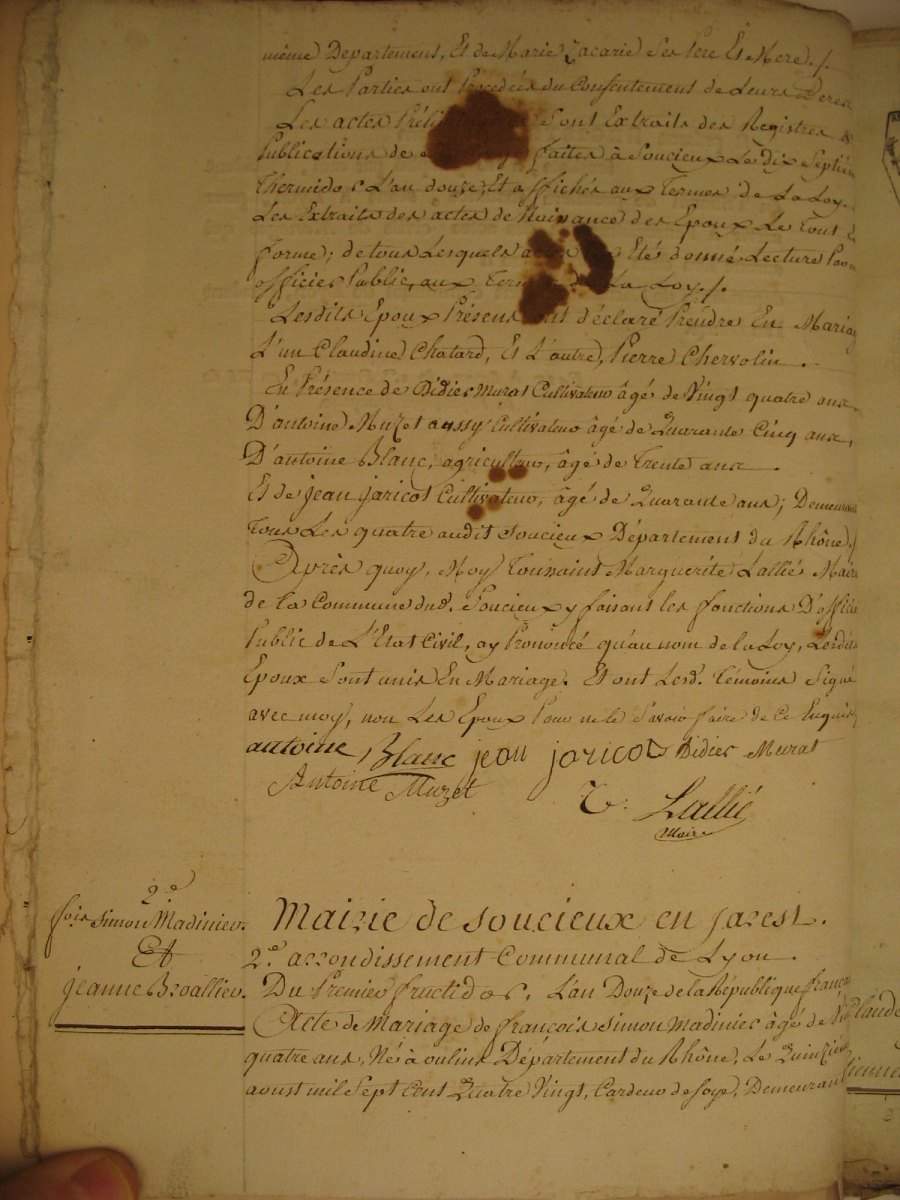 même Departement, Et de Marie Zacarie Ses Pere Et Mere ./.
Les Parties ont Procédées du Consentement de Leurs Peres
Les actes Sont Extraits des Registres &
Publications de faites à Soucieux Le dix Septiem
Thermidor L'an douze, Et affichés aux Termes de La Loy.
Les Extraits des actes de Naissance des Epoux Le Tout
forme; de tous Lesquels Eté donné Lecture Par
officier Public, aux La Loy ./.
Lesdits Epoux Présens ont déclaré Prendre En Mariag
L'un Claudine Chatard, Et L'autre, Pierre Chervolin .
En Présence de Didier Murat Cultivateur âgé de Vingt quatre ans
D'antoine Muzet aussy Cultivateur âgé de Quarante Cinq ans,
D'antoine Blanc, agriculteur, âgé de Trente ans .
Et de jean jaricot Cultivateur, âgé de Quarante ans; Demeurant
Tous Les quatre audit Soucieux Département du Rhône ./
Après quoy, Moy Toussaint Marguerite Lallié Maire
de la Commune dud. Soucieux y faisant les fonctions D'officie
Public de L'Etat Civil, ay Prononcé qu'au nom de la Loy, Lesdits
Epoux Sont unis En Mariage. Et ont Lesd. Témoins Signé
avec moy, non Les Epoux Pour ne le Savoir faire de Ce Enquis
antoine Blanc jean jaricot Didier Murat
Antoine Muzet T. Lallié
Maire
2.e
fois Simon Madinier.
Et
jeanne Broallier.
Mairie de Soucieux en jarest.
2.e arrondissement Communal de Lyon .
Du Premier fructidor, L'an Douze de la République frança
Acte de Mariage de françois Simon Madinier âgé de Vin
quatre ans, Né à oulins Département du Rhône, Le Quinzieme
aoust mil Sept Cent Quatre Vingt, Cardeur de Soye, Demeurant